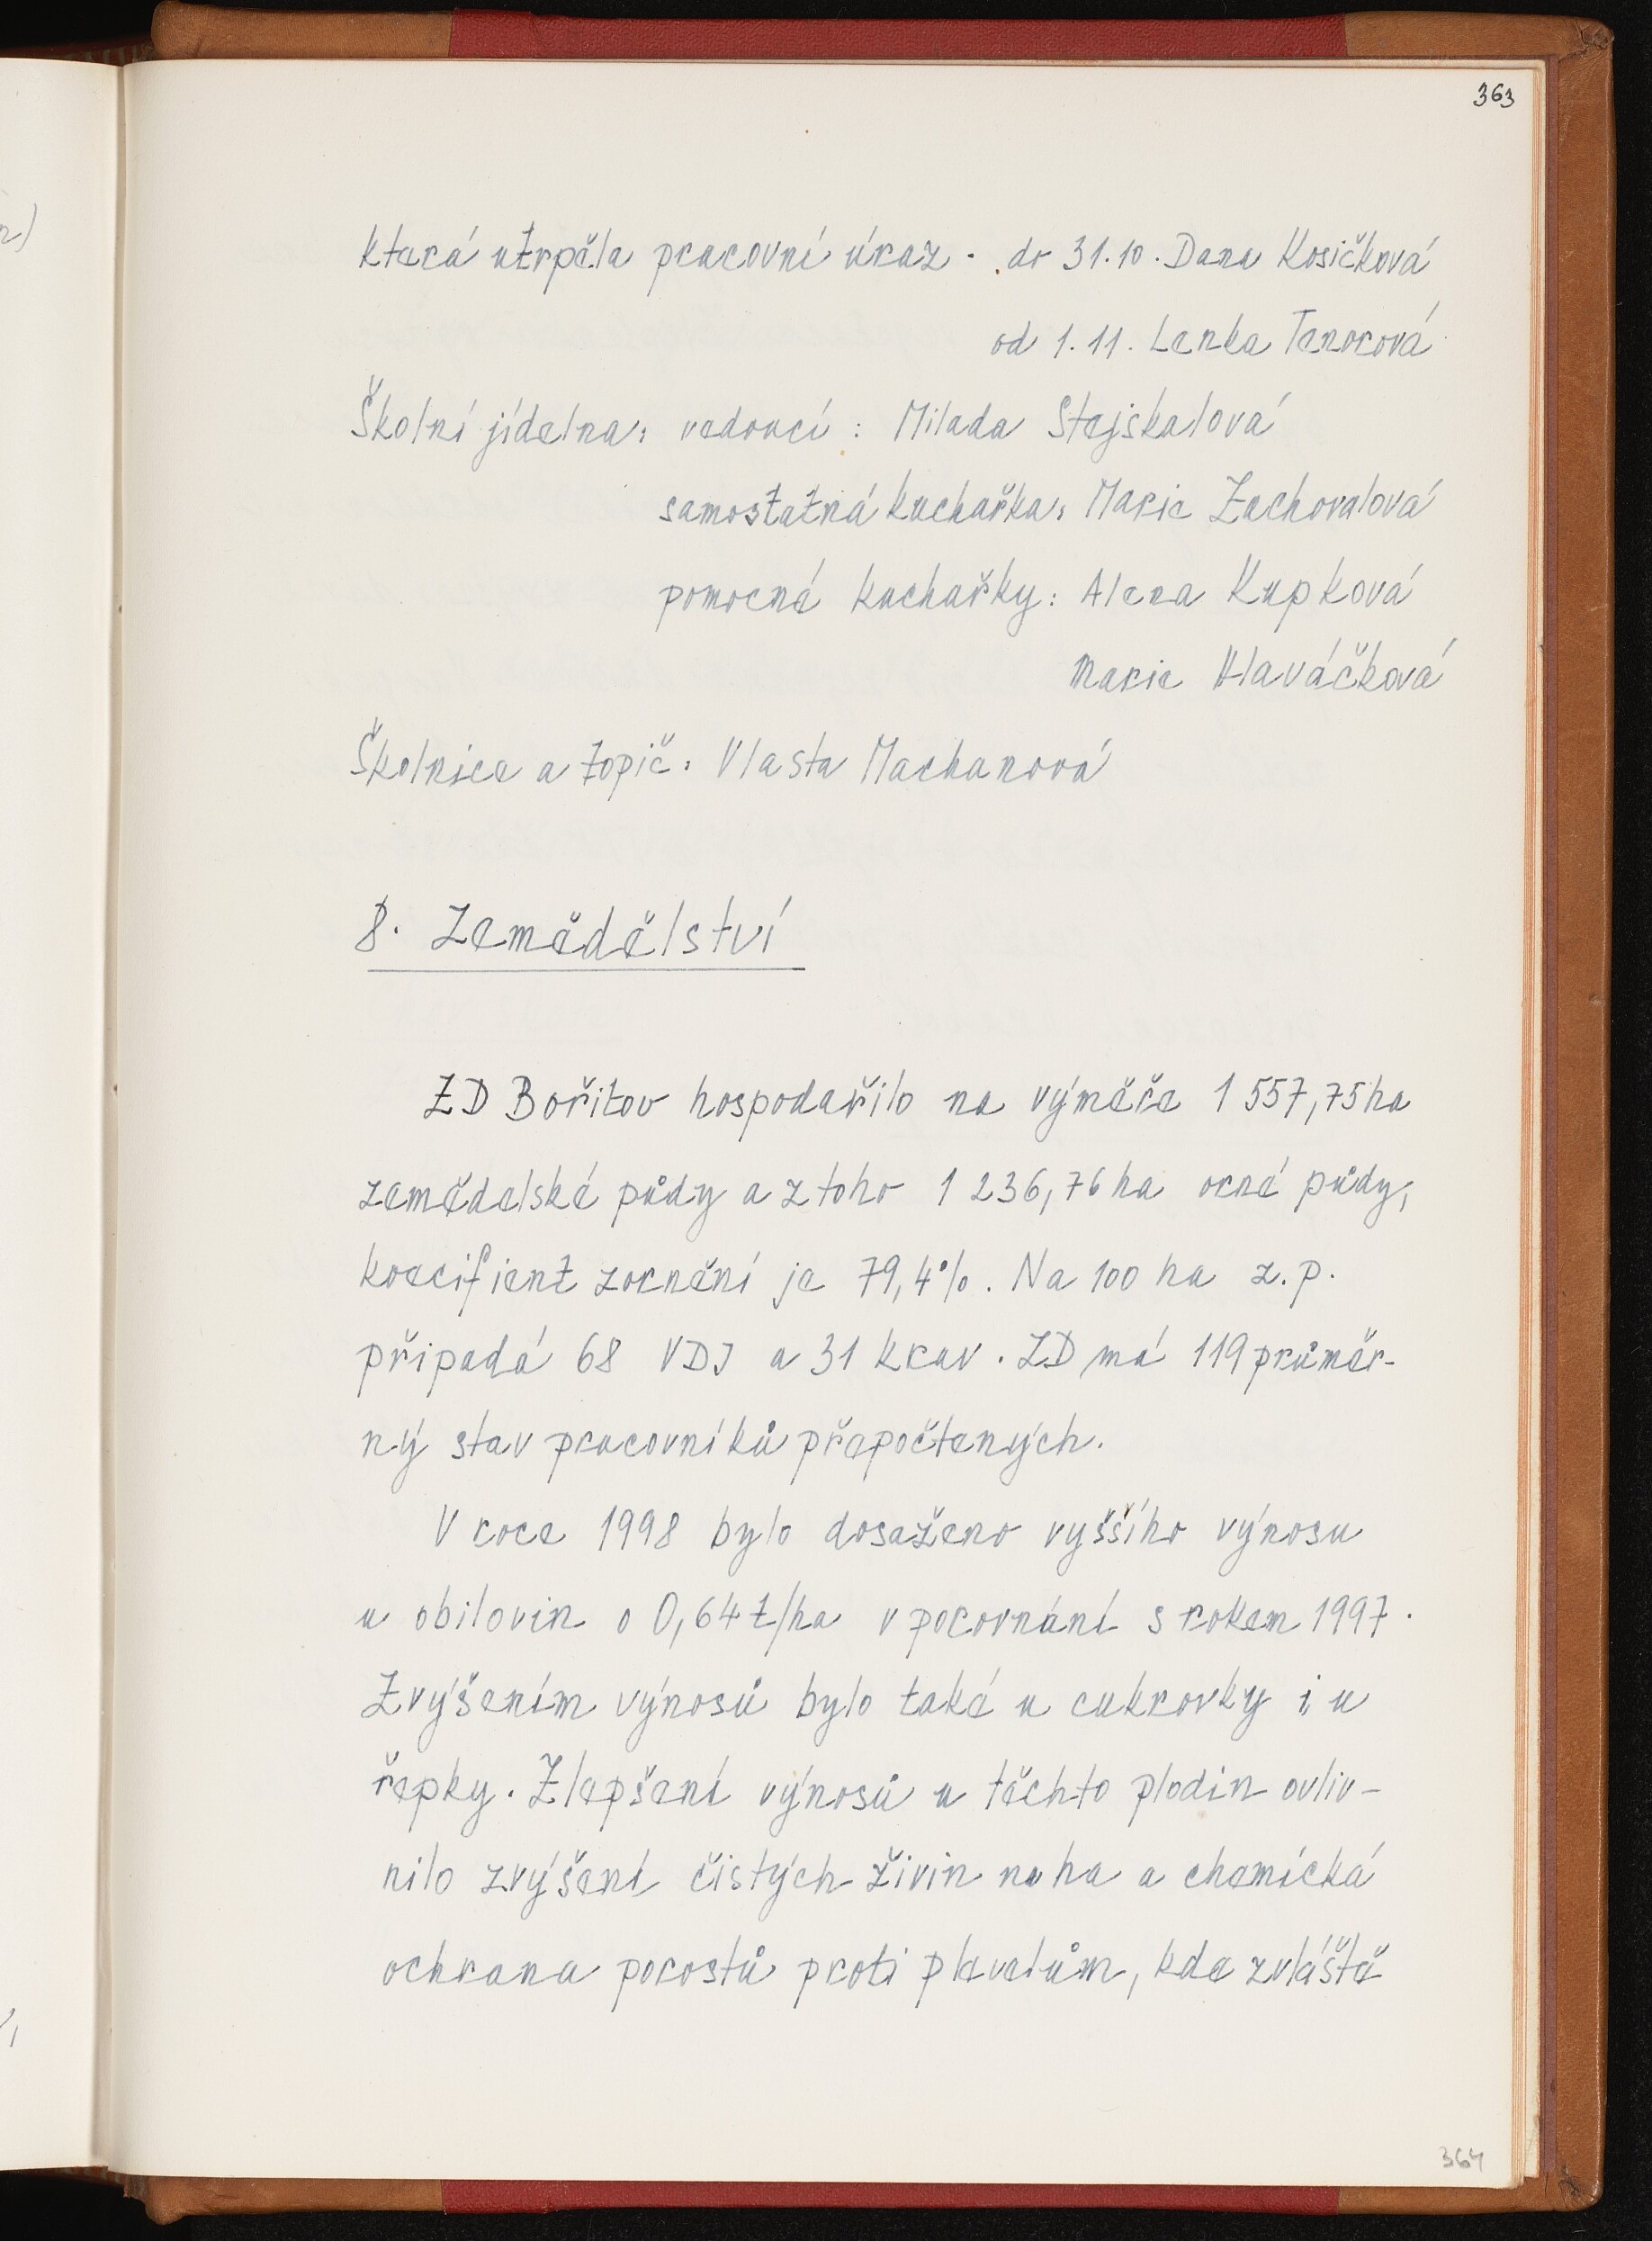 363
která utrpěla pracovní úraz. do 31.10. Dana Kosičková
od 1.11. Lenka Tenorová
Školní jídelna: vedoucí: Milada Stejskalová
samostatná kuchařka: Marie Zachovalová
pomocné kuchařky: Alena Kupková
Marie Hlaváčková
Školnice a topič: Vlasta Machanová
8. Zemědělství
ZD Bořitov hospodařilo na výměře 1 557,75 ha
zemědelské půdy a z toho 1 236,76 ha orné půdy,
koecifient zornění je 79,4%. Na 100 ha z.p.
připadá 68 VDJ a 31 krav. ZD má 119 průměr-
ný stav pracovníků přepočtených.
V roce 1998 bylo dosaženo vyššího výnosu
u obilovin o 0,64 t/ha v porovnání s rokem 1997.
Zvýšením výnosů bylo také u cukrovky i u
řepky. Zlepšení výnosů u těchto plodin ovliv-
nilo zvýšení čistých živin na ha a chemická
ochrana porostů proti plevelům, kde zvláště
364